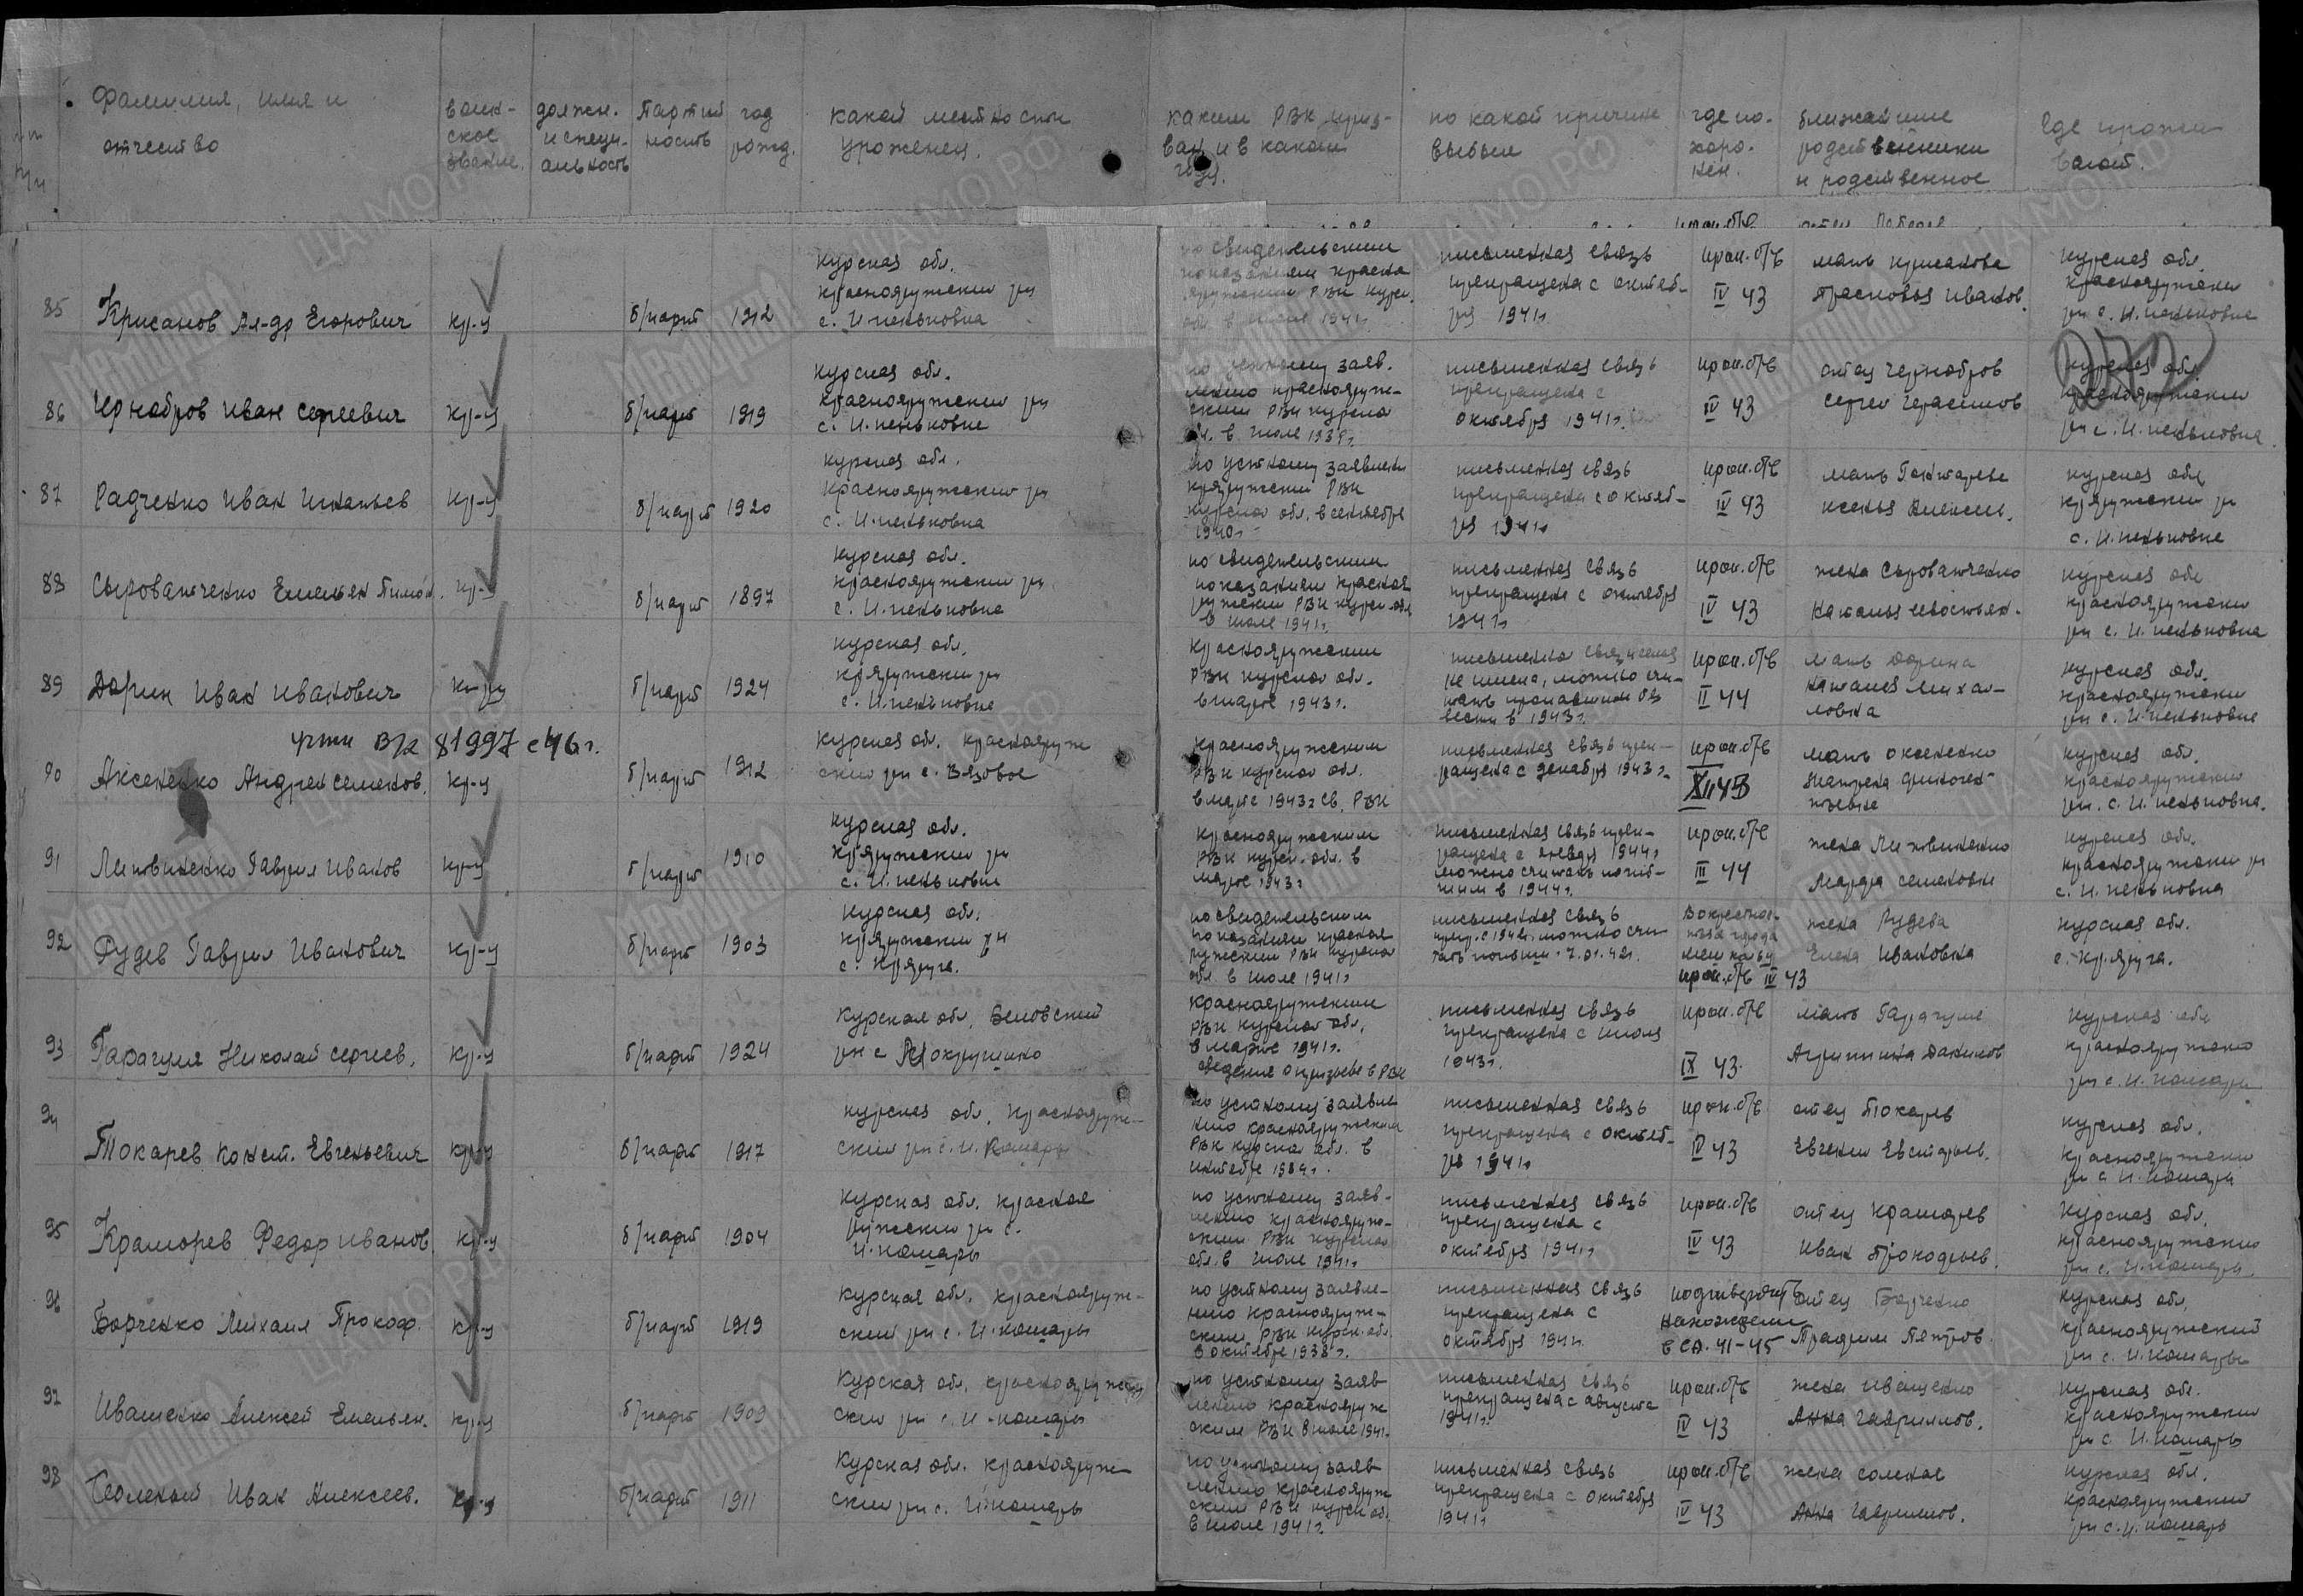 Фамилия, имя и отчество
воин-ское звание.
должн. и специ-альность
Партий ность
год рожд.
какой местности уроженец.
каким РВК приз-ван и в каком году.
по какой причине выбыл
где по-хоро-нен.
ближайшие родственники и родственное
Где прожи вают.
85 Крисанов Ал-др Егорович кр-ц б/парт 1912
Курская обл.
Краснояружский рн
с. И.пеньковка
по свидетельским
показаниям Красно
яружским РВК Курс.
обл. в июле 1941г.
письменная связь
прекращена с октяб-
ря 1941г.
проп.б/в
IV 43
мать Крисанова
Прасковья Иванов.
Курская обл.
Краснояружский
рн с. И.пеньковка
86 Чернобров Иван Сергеевич кр-ц б/парт 1919
Курская обл.
Краснояружский рн
с. И.пеньковка
по устному заяв.
лению Краснояруж-
ским РВК Курской
в июле 1939г.
письменная связь
прекращена с
октября 1941г.
проп.б/в
IV 43
отец Чернобров
Сергей Герасимов
Курская обл.
Краснояружский
рн с. И.пеньковка.
87 Радченко Иван Игнатьев кр-ц б/парт 1920
Курская обл.
Краснояружский рн
с. И.пеньковка
по устному заявлен
Кряружский РВК
Курской обл. в сентябре
1940г.
письменная связь
прекращена с октяб-
ря 1941г.
проп.б/в
IV 43
мать
Ксенья Алексеев.
Курская обл
Кряружский рн
с. И.пеньковка
88 Сыроватченко Емельян Тимоф. кр-ц б/парт 1897
Курская обл.
Краснояружский рн
с. И.пеньковка
по свидетельским
показаниям Краснояр
ружский РВК Курс. обл
в июле 1941г.
письменная связь
прекращена с октября
1941г.
проп.б/в
IV 43
жена Сыроватченко
Наталья Севостьян.
Курская обл
Краснояружский
рн с. И.пеньковка
89 Дорин Иван Иванович кр-ц б/парт 1924
Курская обл.
Кряружский рн
с. И.пеньковка
Краснояружским
РВК Курской обл.
в марте 1943г.
не имела, можно счи-
тать пропавшим без
вести в 1943г.
проп.б/в
II 44
мать Дорина
Наталья Михай-
ловна
Курская обл.
Краснояружский
рн с. И.пеньковка
учтен В/д 81997 с 46 г.
90 Аксененко Андрей Семенов. кр-ц б/парт 1912
Курская обл. Краснояруж
ский рн с. Вязовое
Краснояружским
РВК Курской обл.
в марте 1943г св. РВК
письменная связь прек-
ращена с декабря 1943г.
проп.б/в
XII 43
мать Оксененко
Курская обл.
Краснояружский
рн. с. И.пеньковка.
91 Литвиненко Гаврил Иванов кр-ц б/парт 1910
Курская обл.
Кряружский рн
с. И.пеньковка
Краснояружским
РВК Курс. обл. в
марте 1943г
письменная связь прек-
ращена с января 1944г
можно считать погиб-
шим в 1944г.
проп.б/в
III 44
жена Литвиненко
Марфа Семеновн
Курская обл.
Краснояружский рн
с. И.пеньковка
92 Рудев Гаврил Иванович кр-ц б/парт 1903
Курская обл.
Кряружский рн
с. Кр.Яруга.
по свидетельским
показаниям Краснояр
ружским РВК Курской
обл. в июле 1941г
письменная связь
прекр. с 1942г. можно счи
тать погибш. 7.01.42г.
проп.б/в IV 43
жена Рудева
Елена Ивановна
Курская обл.
с. Кр.Яруга.
93 Гарагуля Николай Сергеев. кр-ц б/парт 1924
Курская обл. Беловский
рн с Мокрушино
Краснояружским
РВК Курской обл.
в марте 1941г.
сведения о призыве в РВК
письменная связь
прекращена с июня
1943г.
проп.б/в
IX 43.
мать Гарагуля
Агрипина Данилов
Курская обл
Краснояружский
рн с. И.пошары
94 Токарев Конст. Евгеньевич кр-ц б/парт 1917
Курская обл. Краснояруж-
ский рн с. И.Пошары
по устному заявле
нию Краснояружским
РВК Курской обл. в
письменная связь
прекращена с октяб-
ря 1941г
проп.б/в
IV 43
отец Токарев
Евгений Евстафьев.
Курская обл.
Краснояружский
рн с И.пошары
95 Краморев Федор Иванов кр-ц б/парт 1904
Курская обл. Красноя
ружский рн с.
И.пошары
по устному заяв-
лению Краснояру-
ским РВК Курской
обл. в июле 1941г
письменная связь
прекращена с
октября 1941г
проп.б/в
IV 43
отец Краморев
Иван Прокофьев.
Курская обл.
Краснояружский
рн с. И.пошары.
96 Борченко Михаил Прокоф. кр-ц б/парт 1919
Курская обл. Краснояруж-
ский рн с. И.пошары
по устному заявле-
нию Краснояруж-
ским РВК Курск. обл.
в октябре 1938г.
письменная связь
прекращена с
октября 1941г.
подтвердить
нахождение
в СА. 41-45
отец Борченко
Курская обл.
Краснояружский
рн с. И.пошары
97 Иващенко Алексей Емельян. кр-ц б/парт 1909
Курская обл. Краснояруж
ский рн с. И-пошары
по устному заяв
лению Краснояруж
ским РВК в июле 1941г.
письменная связь
прекращена с августа
1941г.
проп.б/в
IV 43
жена Иващенко
Анна Гаврилов.
Курская обл.
Краснояружский
рн с. И.пошары
98 Солекой Иван Алексеев. кр-ц б/парт 1911
Курская обл. Краснояруж
ский рн с. И.пошары
по устному заяв
лению Краснояруж
ским РВК Курск об.
в июле 1941г.
письменная связь
прекращена с октября
1941г
проп.б/в
IV 43
жена Солекая
Анна Гаврилов.
Курская обл.
Краснояружский
рн с. И.пошары